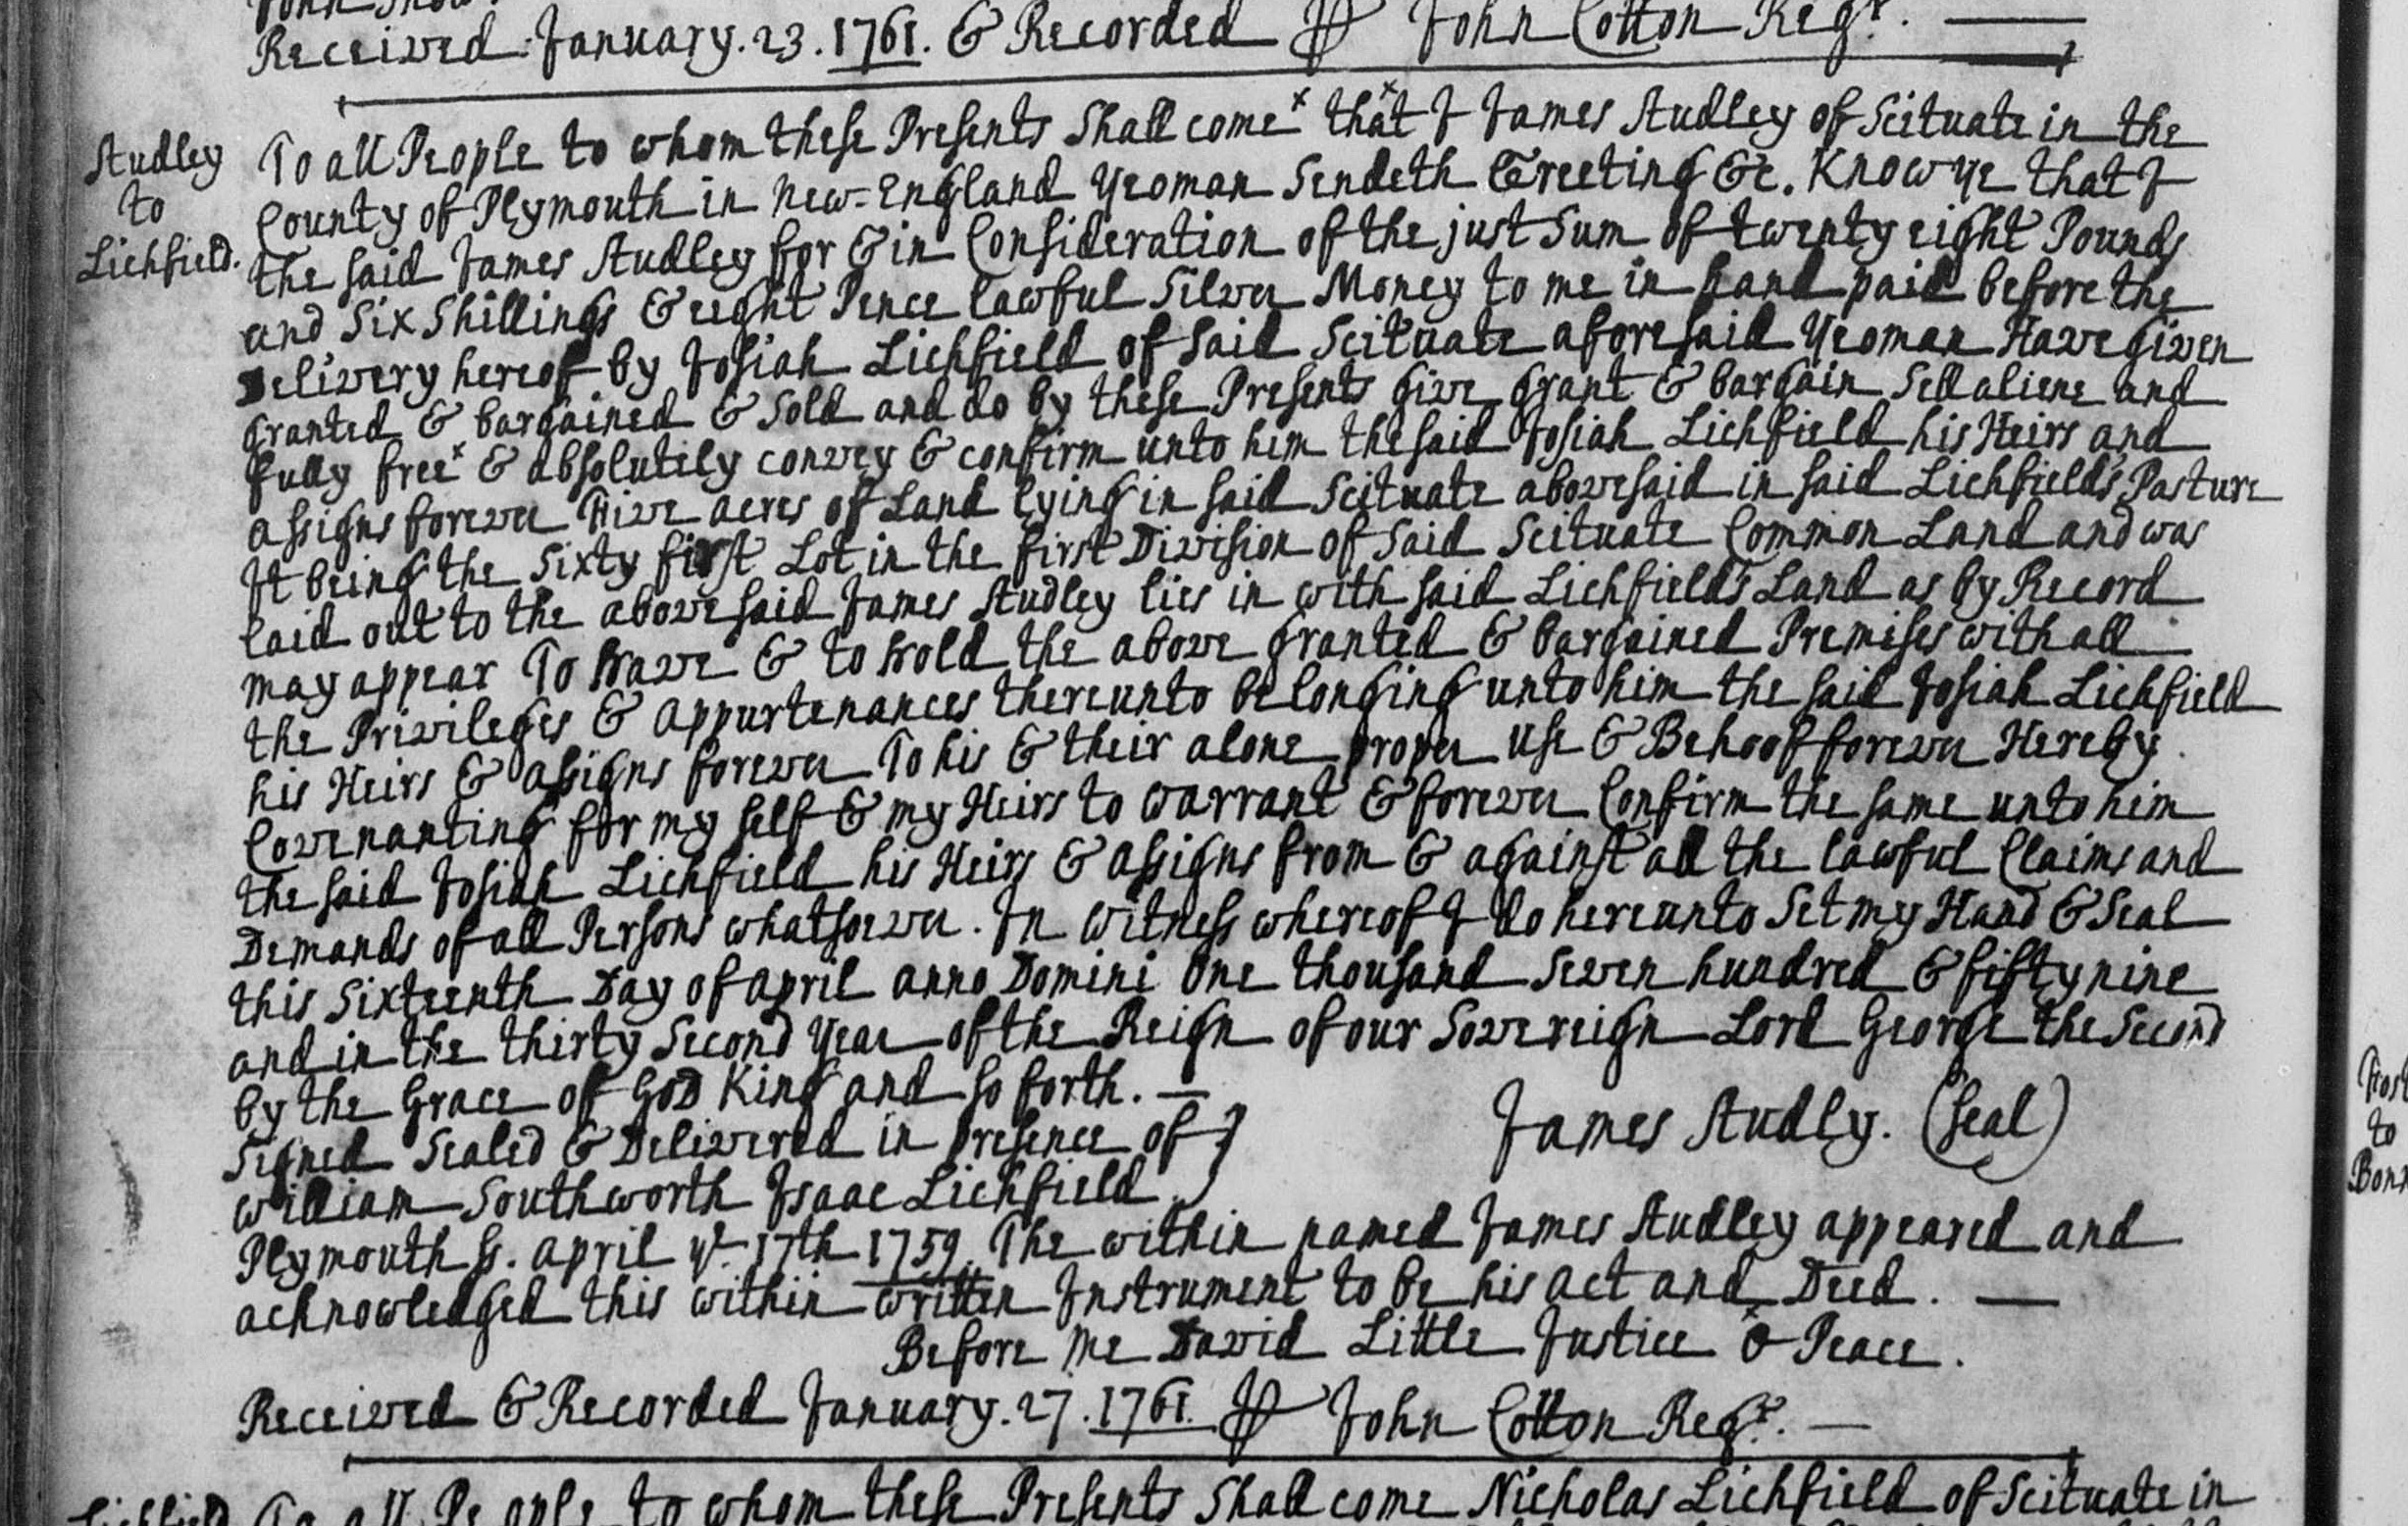 Received January. 23. 1761. & Recorded ⅌ John Cotton Regr.
Studley
to
Lichfield.
To all People to whom these Presents Shall come x that x I James Studley of Scituate in the
County of Plymouth in New-England Yeoman Sendeth Greeting &c. Know ye that I
the said James Studley for & in Consideration of the just Sum of twenty eight Pounds
and Six Shillings & eight Pence lawful Silver Money to me in hand paid before the
Delivery hereof by Josiah Lichfield of said Scituate aforesaid Yeoman Have given
granted & bargained & Sold and do by these Presents give grant & bargain Sell aliene and
fully free x & absolutely convey & confirm unto him the said Josiah Lichfield his Heirs and
assigns forever Five acres of Land lying in said Scituate abovesaid in said Lichfield's Pasture
It being the Sixty first Lot in the first Division of said Scituate Common Land and was
laid out to the abovesaid James Studley lies in with said Lichfield's Land as by Record
may appear To Have & to hold the above granted & bargained Premises with all
the Privileges & appurtenances thereunto belonging unto him the said Josiah Lichfield
his Heirs & assigns forever To his & their alone proper use & Behoof forever Hereby
Covenanting for my self & my Heirs to warrant & forever Confirm the same unto him
the said Josiah Lichfield his Heirs & assigns from & against all the lawful Claims and
Demands of all Persons whatsoever. In Witness whereof I do hereunto Set my Hand & Seal
this Sixteenth Day of april anno Domini one thousand seven hundred & fifty nine
and in the thirty Second Year of the Reign of our Sovereign Lord George the Second
by the Grace of GOD King and so forth. —
Signed Sealed & Delivered in presence of }
James Studly. (Seal)
William Southworth Isaac Lichfield
Plymouth Ss. april ye 17th 1759 The within named James Studley appeared and
acknowledged this within written Instrument to be his act and Deed. —
Before me David Little Justice o Peace.
Received & Recorded January. 27. 1761. ⅌ John Cotton Regr. —
Lichfield
To all People to whom these Presents Shall come Nicholas Lichfield of Scituate in
to